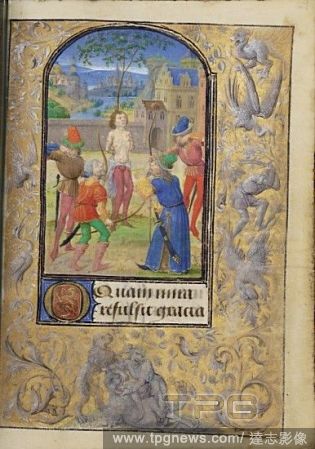 O Quam mira
refulsit gracia
TPG
www.tpgnews.com/ 達志影像